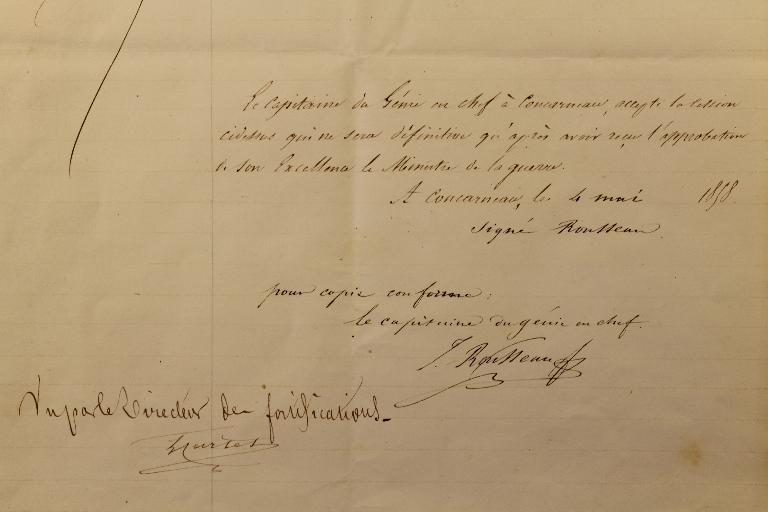 Le Capitaine du Génie en chef à Concarneau, accepte la cession
cidessus qui ne sera définitive qu'après avoir reçu l'approbation
de son Excellence le Ministre de la guerre.
A Concarneau, le 4 mai 1858.
Signé Rousseau.
pour copie conforme :
le capitaine du génie en chef.
J. Rousseau
Vu par le Directeur des fortifications_